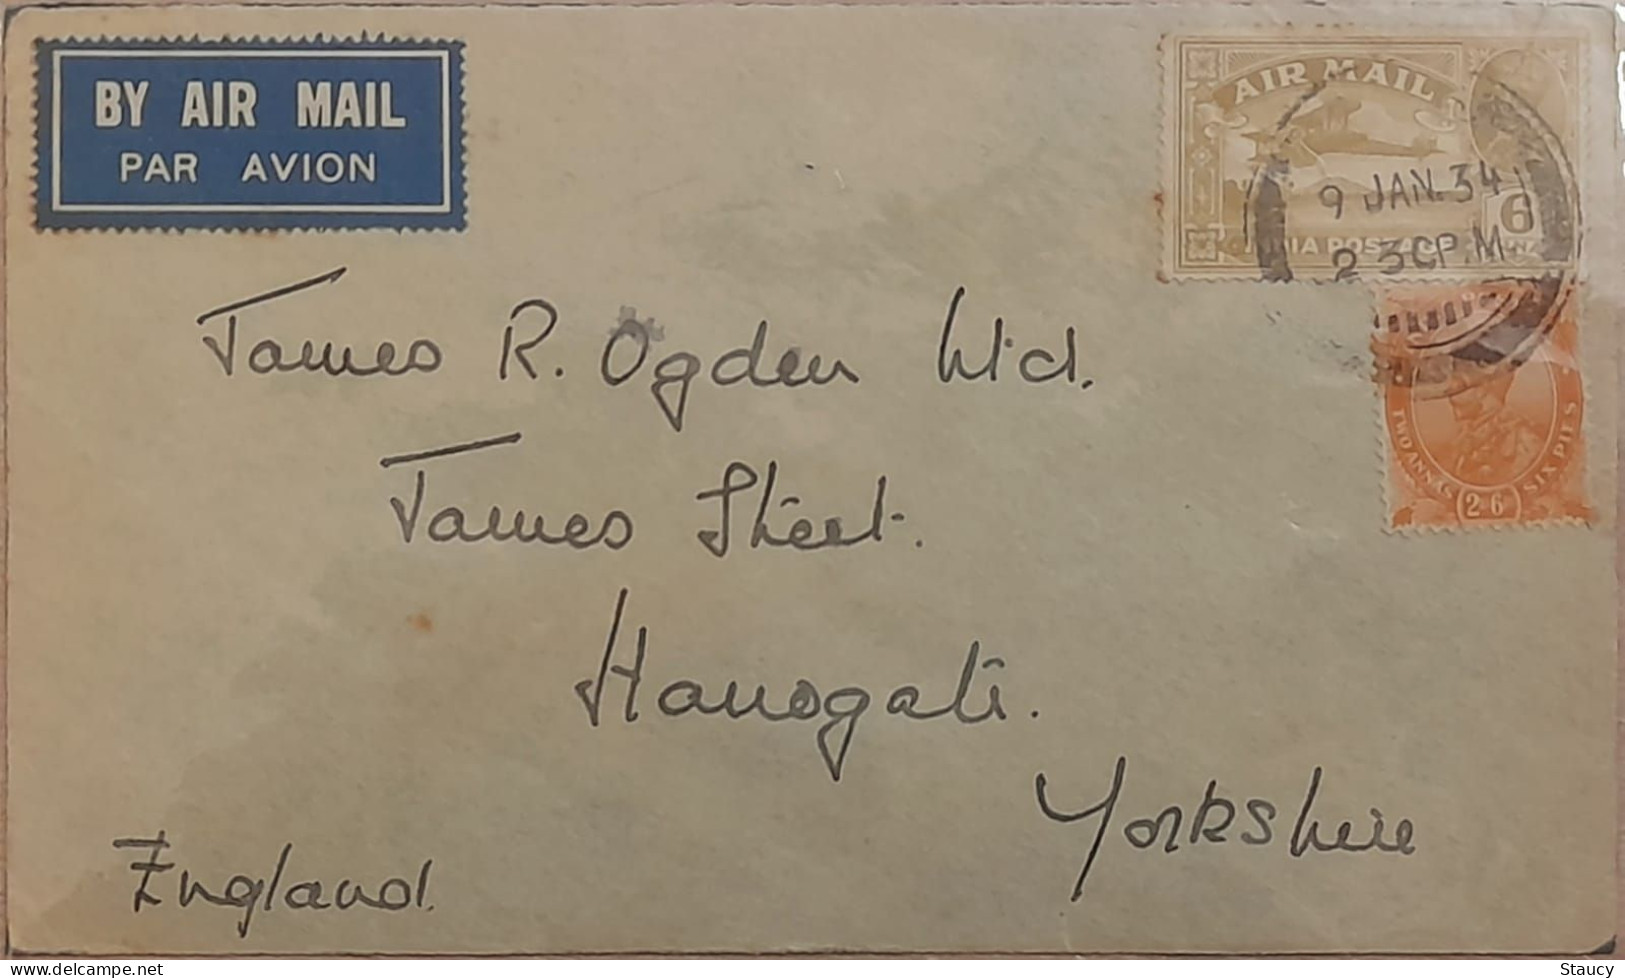 BY AIR MAIL
PAR AVION
AIR MAIL
9 JAN. 34
2 30 P.M.
6
INDIA POSTAGE
TWO ANNAS SIX PIES
2 6
James R. Ogden Ltd.
James Street.
Harrogate.
Yorkshire
England.
Staucy